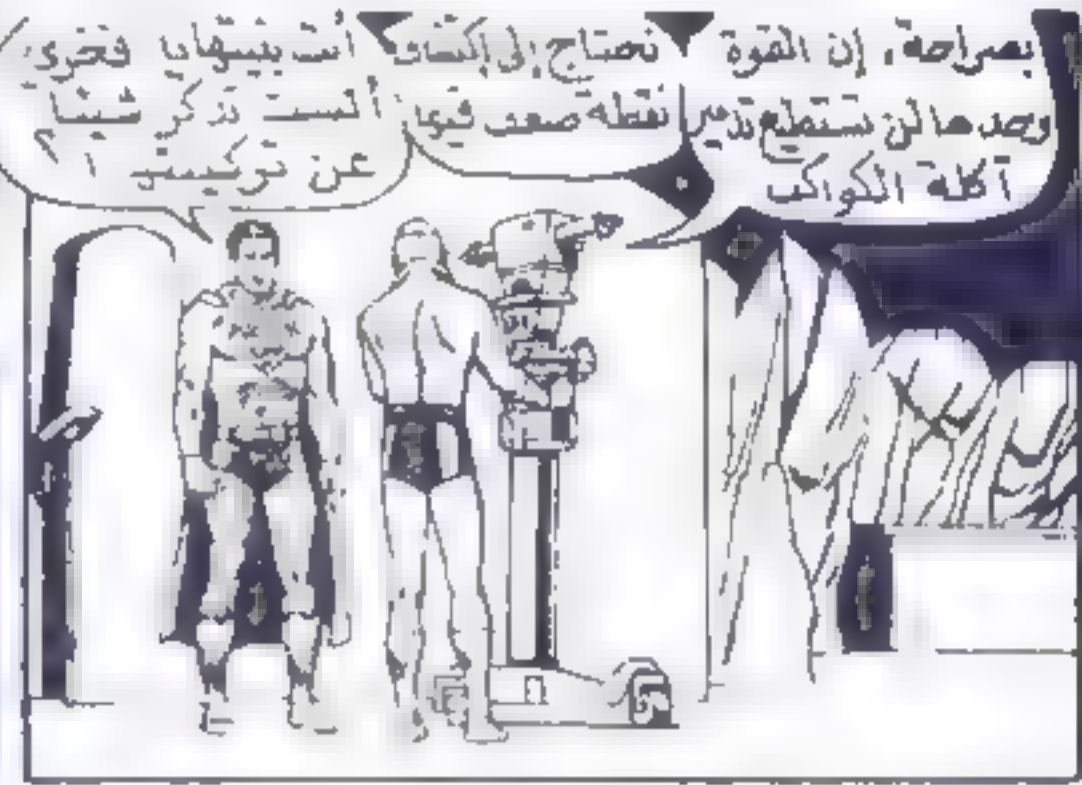 بصراحة، إن القوة
وحدها لن تستطيع تدمير
آكلة الكواكب
نحتاج إلى إكتشاف
نقطة ضعف فيها
أنت بنيتها يا فخري
ألست تذكر شيئا
عن